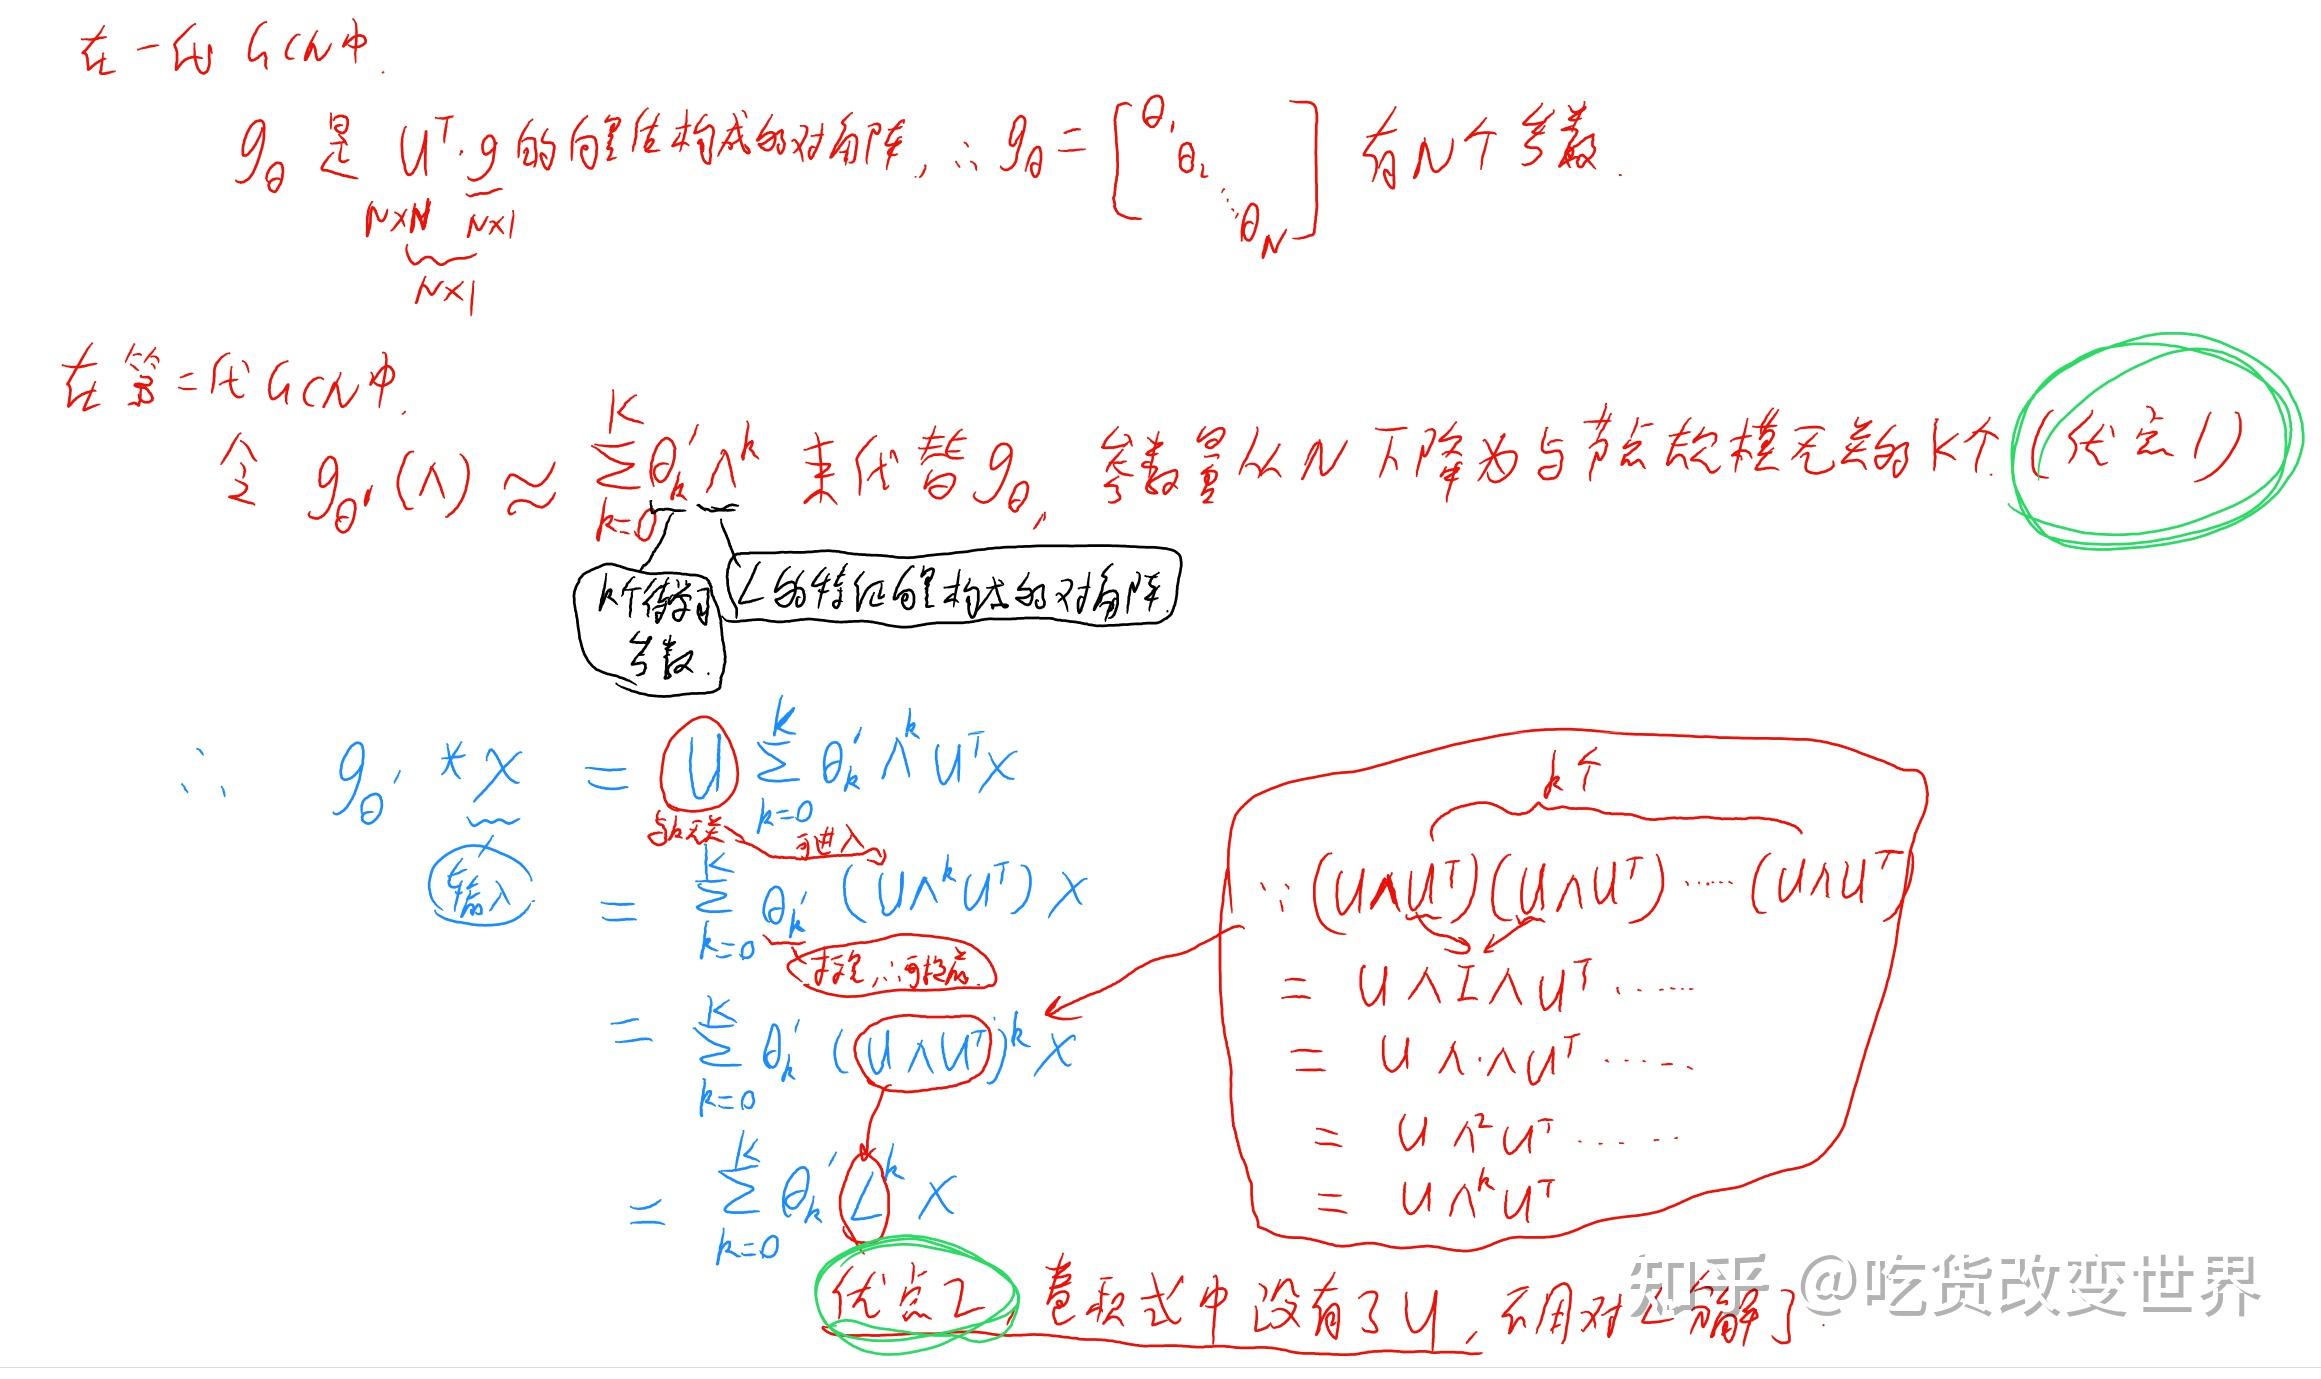 在一代 GCN中.
g_θ 是 U^T·g 的向量值构成的对角阵, ∴ g_θ = [θ_1 θ_2 ⋱ θ_N] 有N个参数.
N×N N×1
N×1
在第二代GCN中.
令 g_θ'(Λ) ≈ ∑_{k=0}^{K} θ'_k Λ^k 来代替 g_θ, 参数量从N下降为与节点规模无关的K个. (优点1)
k个待学习参数.
L的特征向量构成的对角阵.
∴ g_θ' * x = U ∑_{k=0}^{K} θ'_k Λ^k U^T x
与k无关 可进入
输入
= ∑_{k=0}^{K} θ'_k (UΛ^kU^T) x
∴可挪后
= ∑_{k=0}^{K} θ'_k (UΛU^T)^k x
= ∑_{k=0}^{K} θ'_k L^k x
k个
∵ (UΛU^T)(UΛU^T) …… (UΛU^T)
= UΛIΛU^T ……
= UΛ·ΛU^T ……
= UΛ^2U^T ……
= UΛ^kU^T
优点2 卷积式中没有了U, 不用对L分解了.
知乎 @吃货改变世界